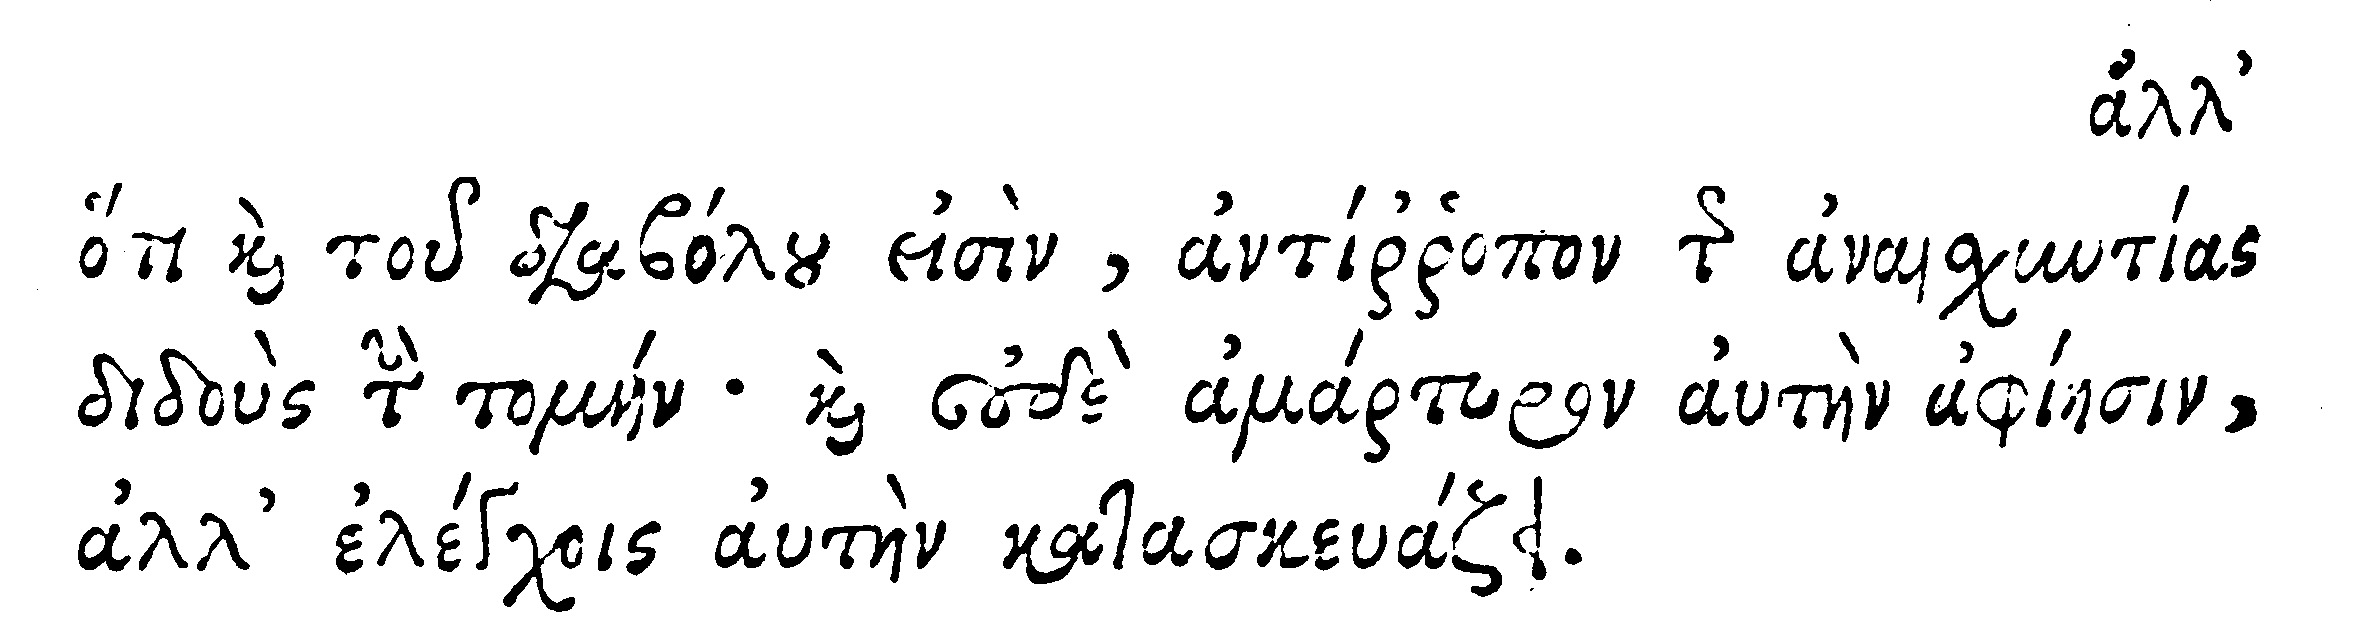 ἀλλ’
ὅτι καὶ τοῦ διαβόλου εἰσὶν, ἀντίῤῥοπον τῆς ἀναισχυντίας
διδοὺς τὴν τομήν· καὶ οὐδὲ ἀμάρτυρον αὐτὴν ἀφίησιν,
ἀλλ’ ἐλέγχοις αὐτὴν κατασκευάζει.